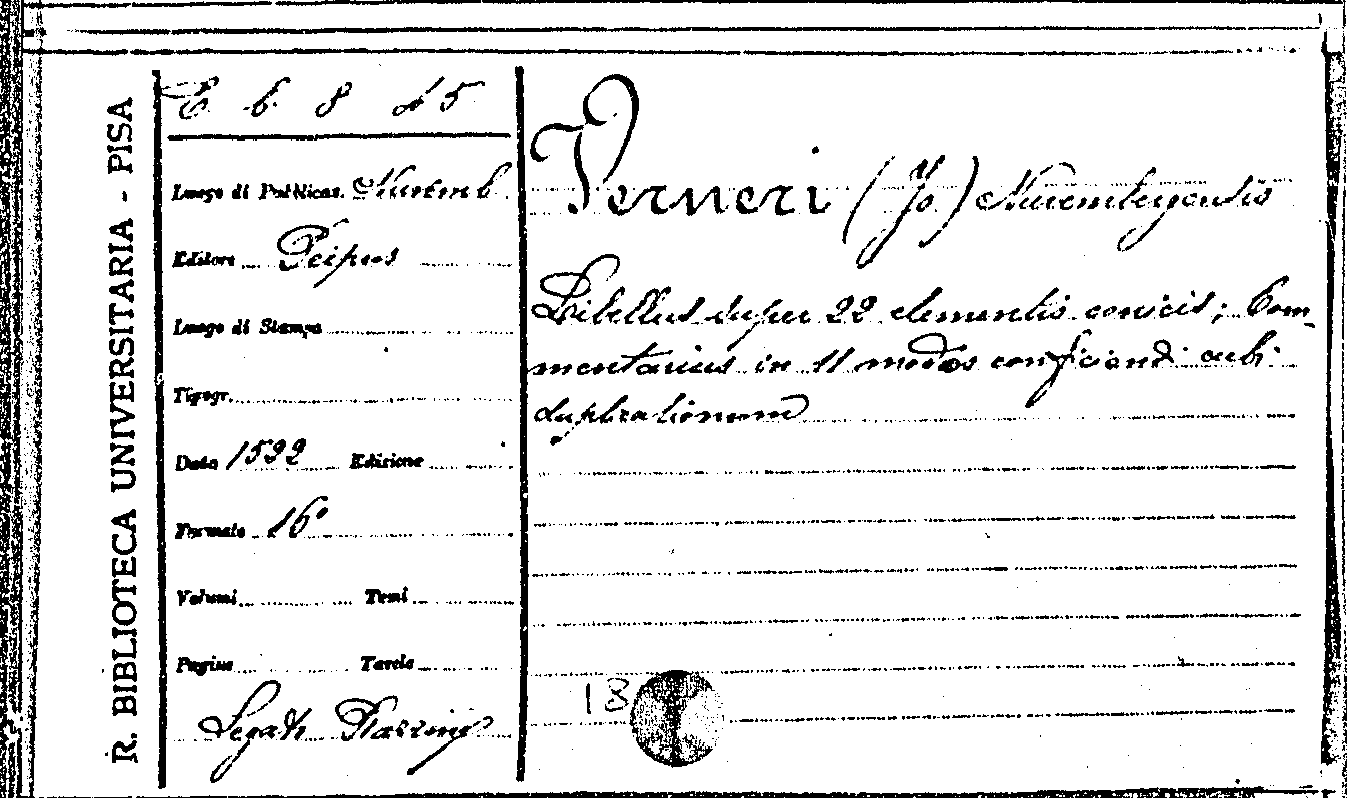 R. BIBLIOTECA UNIVERSITARIA - PISA
E b. 8 45
Luogo di Pubblicaz. Nuremb
Editore Peipus
Luogo di Stampa
Tipogr.
Data 1522 Edizione
Formato 16°
Volumi Tomi
Pagine Tavole
Legato
Verneri (Jo) Nurembergensis
Libellus super 22 elementis conicis; Com-
mentarius in 11 modos conficiendi cubi
duplationum
18